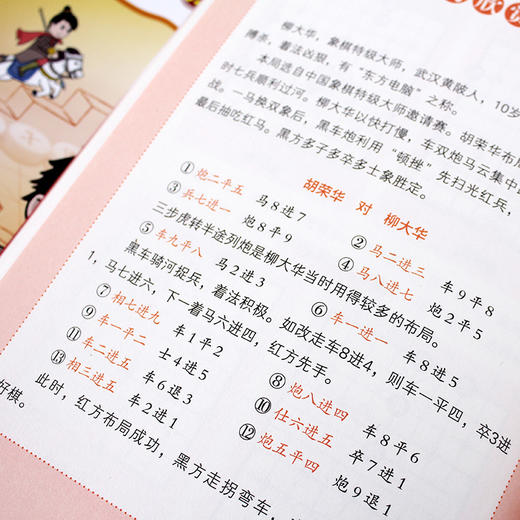 柳大华，象棋特级大师，武汉黄陂人，10岁
搏杀，着法凶狠，有“东方电脑”之称。
本局选自中国象棋特级大师邀请赛。胡荣华布局
时七兵顺利过河。柳大华以快打慢，车双炮马云集中
战。一马换双象后，黑车炮利用“顿挫”先扫光红兵，
最后抽吃红马。黑方多子多卒多士象胜定。
胡荣华 对 柳大华
①炮二平五 马8进7 ②马二进三 车9平8
③兵七进一 炮8平9 ④马八进七 炮2平5
三步虎转半途列炮是柳大华当时用得较多的布局。
⑤车九平八 马2进3 ⑥车一进一 车8进5
黑车骑河捉兵，着法积极。如改走车8进4，则车一平四，卒3进
1，马七进六，下一着马六进四，红方先手。
⑦相七进九 车1平2 ⑧炮八进四 车8平6
⑨车一平二 士4进5 ⑩仕六进五 卒7进1
⑪车二进五 车6退3 ⑫炮五平四 炮9退1
⑬相三进五 车2进1
此时，红方布局成功，黑方走拐弯车，
好棋。